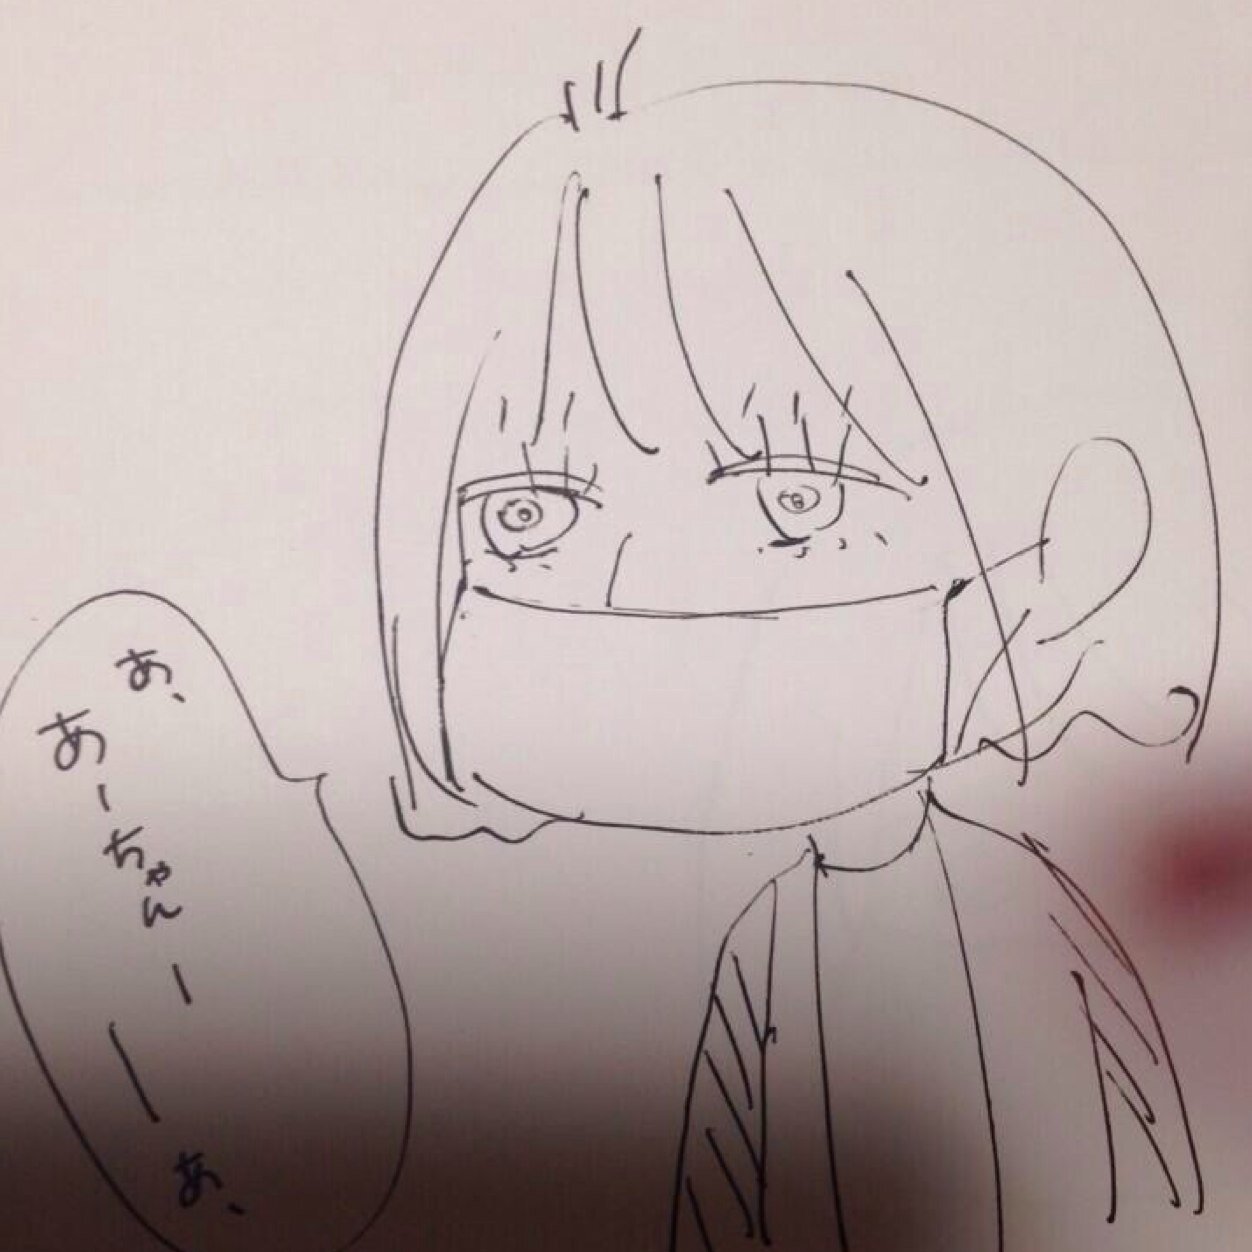 あ、
あーちゃんー
ーあ、